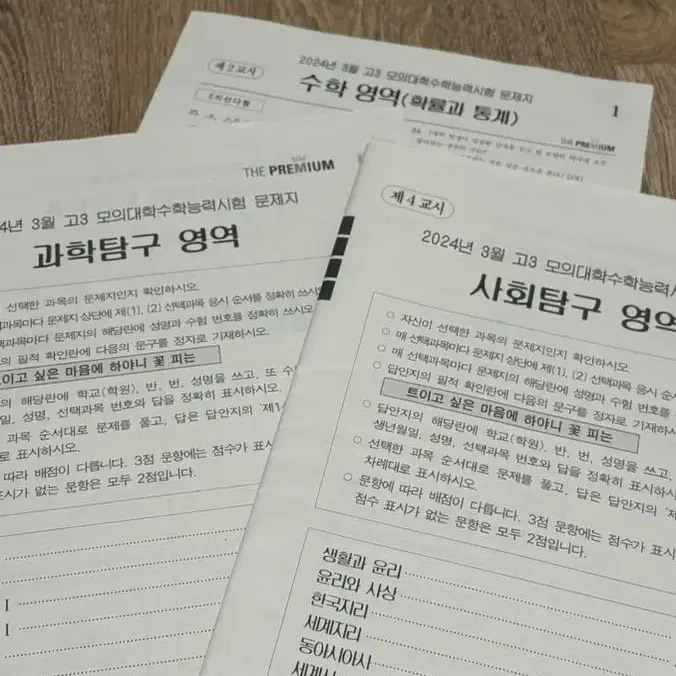 제 2 교시
2024년 3월 고3 모의대학수학능력시험 문제지
수학 영역(확률과 통계)
1
5지선다형
THE PREMIUM
THE PREMIUM
4년 3월 고3 모의대학수학능력시험 문제지
과학탐구 영역
선택한 과목의 문제지인지 확인하시오.
과목마다 문제지 상단에 제(1), (2) 선택과목 응시 순서를 정확히 쓰시오
택과목마다 문제지의 해당란에 성명과 수험 번호를 정확히 쓰시오
의 필적 확인란에 다음의 문구를 정자로 기재하시오.
트이고 싶은 마음에 하야니 꽃 피는
의 해당란에 학교(학원), 반, 번, 성명을 쓰고, 또 수
일, 성명, 선택과목 번호와 답을 정확히 표시하시오.
과목 순서대로 문제를 풀고, 답은 답안지의 '제1
로 표시하시오.
따라 배점이 다릅니다. 3점 문항에는 점수가 표시
표시가 없는 문항은 모두 2점입니다.
I
I
제 4 교시
2024년 3월 고3 모의대학수학능력시
사회탐구 영역
○ 자신이 선택한 과목의 문제지인지 확인하시오.
○ 매 선택과목마다 문제지 상단에 제(1), (2) 선택과목 응시 순서
○ 매 선택과목마다 문제지의 해당란에 성명과 수험 번호를
○ 답안지의 필적 확인란에 다음의 문구를 정자로 기재하시
트이고 싶은 마음에 하야니 꽃 피는
○ 답안지의 해당란에 학교(학원), 반, 번, 성명을 쓰고,
생년월일, 성명, 선택과목 번호와 답을 정확히 표시하시
○ 선택한 과목 순서대로 문제를 풀고, 답은 답안지의 '제
차례대로 표시하시오.
○ 문항에 따라 배점이 다릅니다. 3점 문항에는 점수가 표
점수 표시가 없는 문항은 모두 2점입니다.
생활과 윤리
윤리와 사상
한국지리
세계지리
동아시아사
세계사